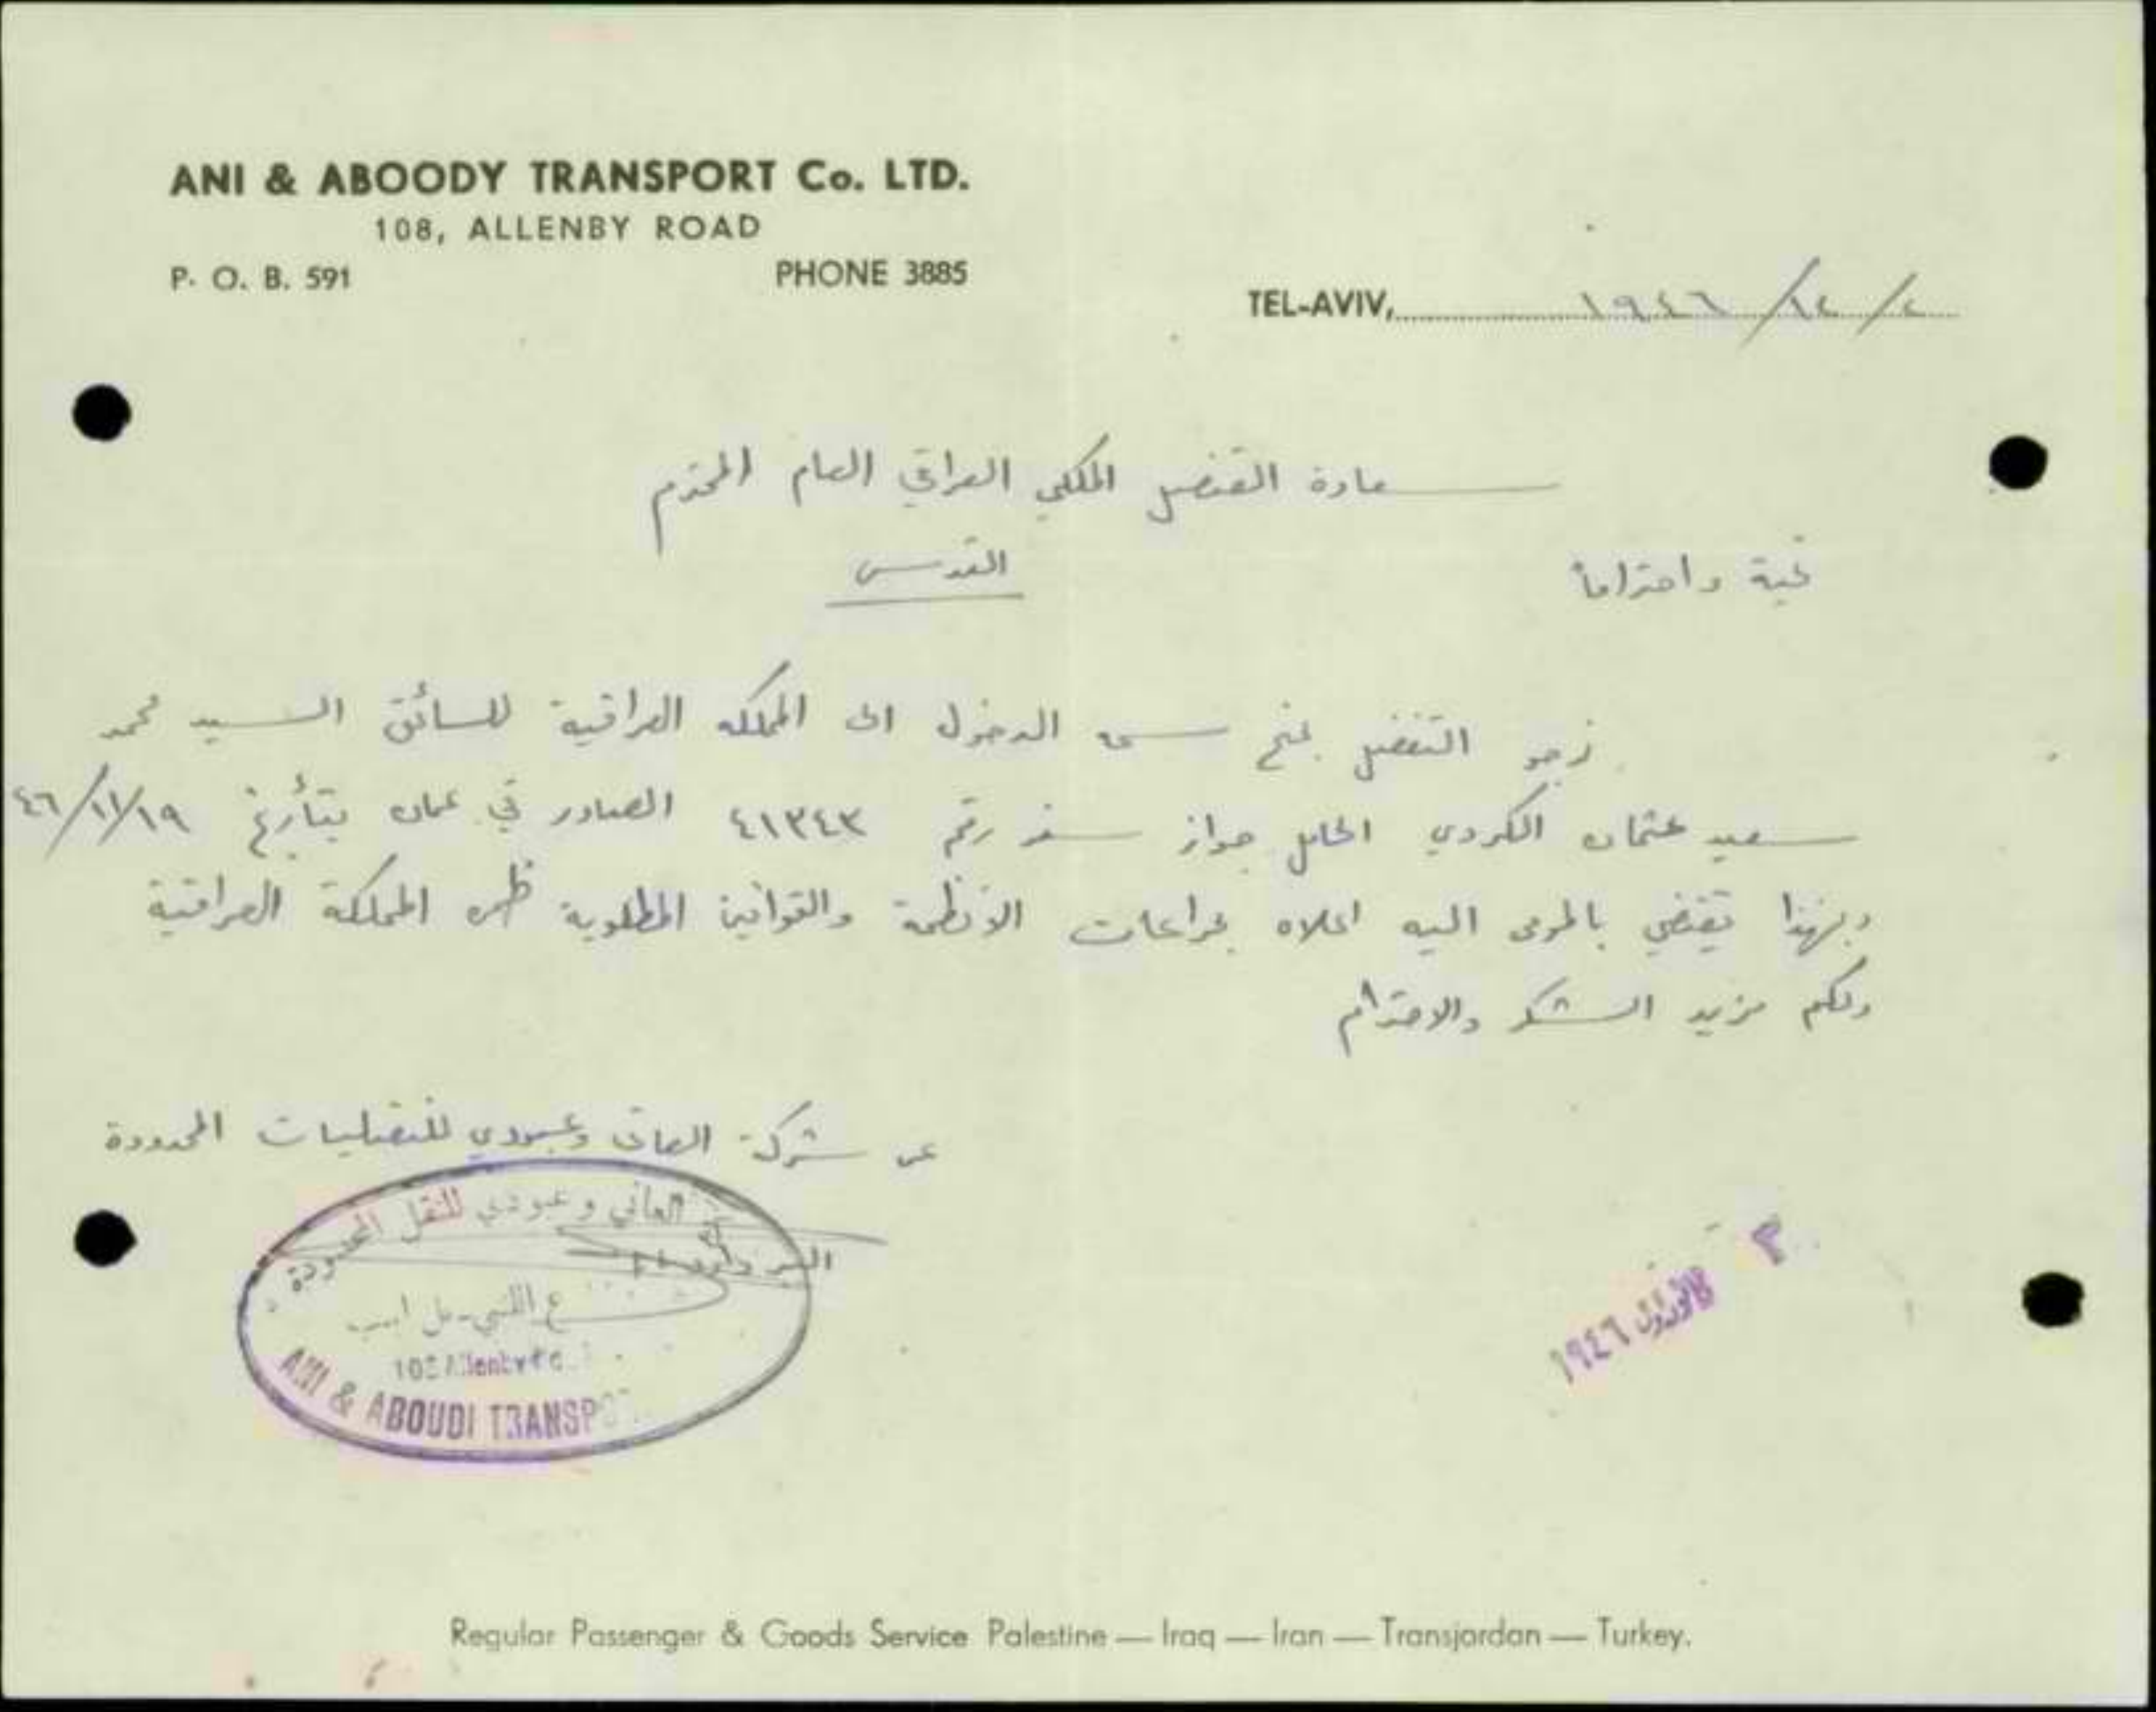 ANI & ABOODY TRANSPORT Co. LTD.
108, ALLENBY ROAD
P. O. B. 591 PHONE 3885
TEL-AVIV, ٢/١٢/١٩٤٦
سعادة القنصل الملكي العراقي العام المحترم
القدس
تحية واحتراماً
نرجو التفضل بمنح سمة الدخول الى المملكه العراقية للسائق السيد محمد
سعيد عثمان الكردي الحامل جواز سفر رقم ٤١٣٤٣ الصادر في عمان بتأريخ ١٩/١١/٤٦
وبهذا تقتضي بالمومى اليه اعلاه بمراعات الأنظمة والقوانين المطلوبة المملكة العراقية
ولكم مزيد الشكر والاحترام
عن شركة العاني وعبودي للنقليات المحدودة
العاني و عبودي للنقل المحدودة
اللنبي - تل ابيب
108 Allenby Rd.
ANI & ABOUDI TRANSPO
٣ كانون الاول ١٩٤٦
Regular Passenger & Goods Service Palestine — Iraq — Iran — Transjordan — Turkey.